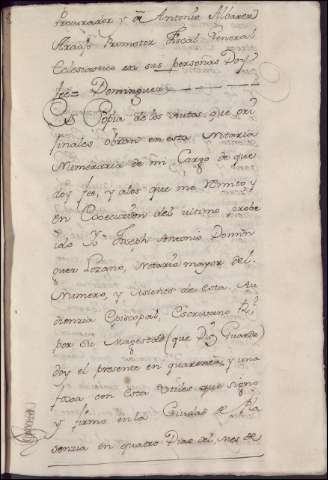 Procurador y a Antonio Albarez
Araujo Promotor Fiscal General
Eclesiastico en sus personas Doy
fee= Dominguez
Es Copia de los Autos que ori
ginales obran en esta Notaria
Numeraria de mi Cargo de que
doy fee, y a los que me remito y
en Execucion del ultimo probe
ido Yo Joseph Antonio Domin
guez Lozano, Notario mayor del
Numero, y Visiones de esta Au
diencia Episcopal, Escrivano Rl.
por Su Magestad (que Ds. Guarde)
doy el presente en quarenta y una
foxas con esta Utiles que signo
y firmo en la Ciudad de Pla
sencia en quatro Dias del Mes de